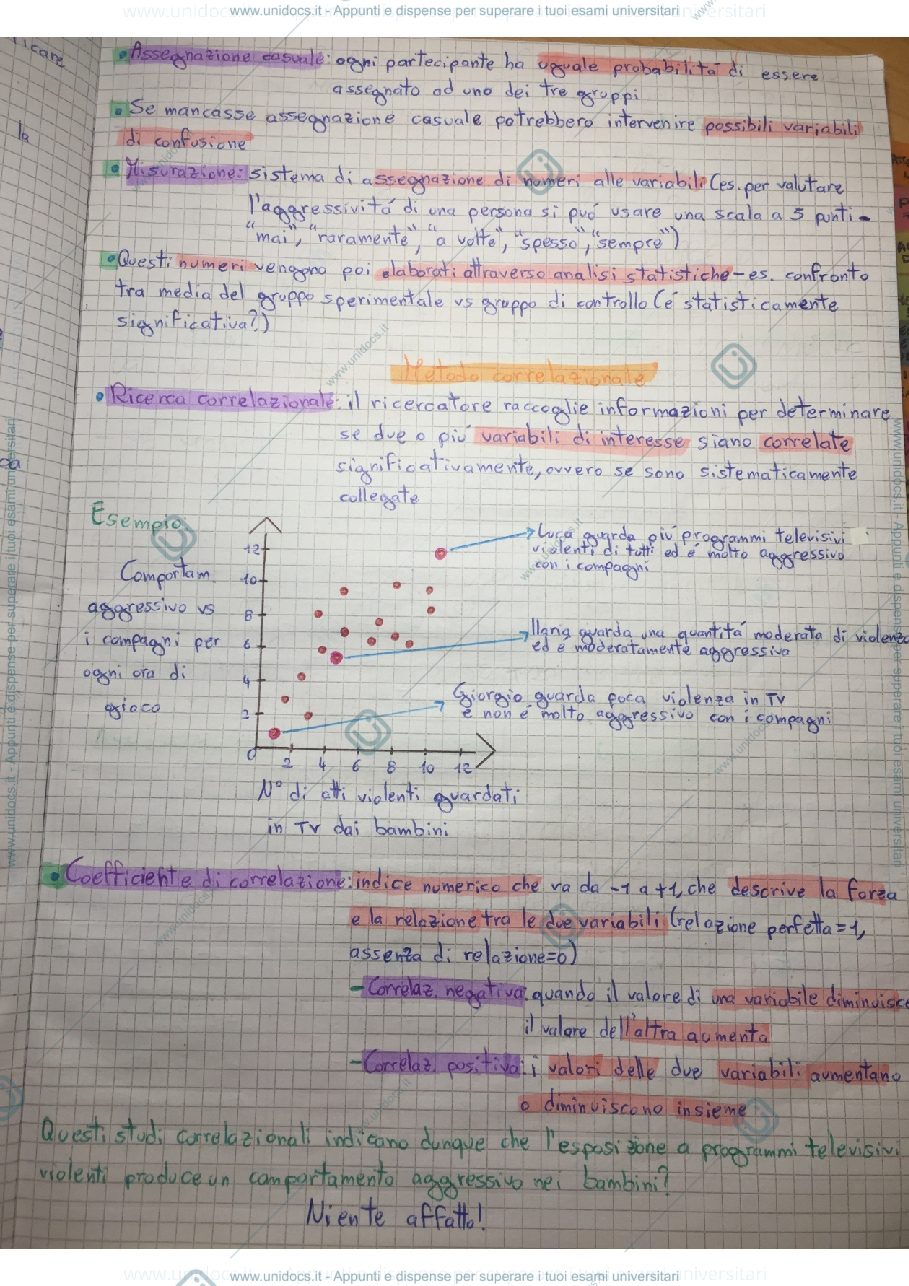 www.unidocs.it - Appunti e dispense per superare i tuoi esami universitari
• Assegnazione casuale: ogni partecipante ha uguale probabilità di essere
assegnato ad uno dei tre gruppi
• Se mancasse assegnazione casuale potrebbero intervenire possibili variabili
di confusione
• Misurazione: sistema di assegnazione di numeri alle variabili (es. per valutare
l'aggressività di una persona si può usare una scala a 5 punti -
"mai", "raramente", "a volte", "spesso", "sempre")
• Questi numeri vengono poi elaborati attraverso analisi statistiche - es. confronto
tra media del gruppo sperimentale vs gruppo di controllo (é statisticamente
significativa?)
Metodo correlazionale
• Ricerca correlazionale: il ricercatore raccoglie informazioni per determinare
se due o più variabili di interesse siano correlate
significativamente, ovvero se sono sistematicamente
collegate
Esempio
Comportam.
aggressivo vs
i compagni per
ogni ora di
gioco
12
10
8
6
4
2
0
2 4 6 8 10 12
Luca guarda più programmi televisivi
violenti di tutti ed é molto aggressivo
con i compagni
Ilaria guarda una quantità moderata di violenza
ed é moderatamente aggressiva
Giorgio guarda poca violenza in TV
e non é molto aggressivo con i compagni
N° di atti violenti guardati
in TV dai bambini
• Coefficiente di correlazione: indice numerico che va da -1 a +1, che descrive la forza
e la relazione tra le due variabili (relazione perfetta=1,
assenza di relazione=0)
- Correlaz. negativa: quando il valore di una variabile diminuisce
il valore dell'altra aumenta
- Correlaz. positiva: i valori delle due variabili aumentano
o diminuiscono insieme
Questi studi correlazionali indicano dunque che l'esposizione a programmi televisivi
violenti produce un comportamento aggressivo nei bambini?
Niente affatto!
www.unidocs.it - Appunti e dispense per superare i tuoi esami universitari